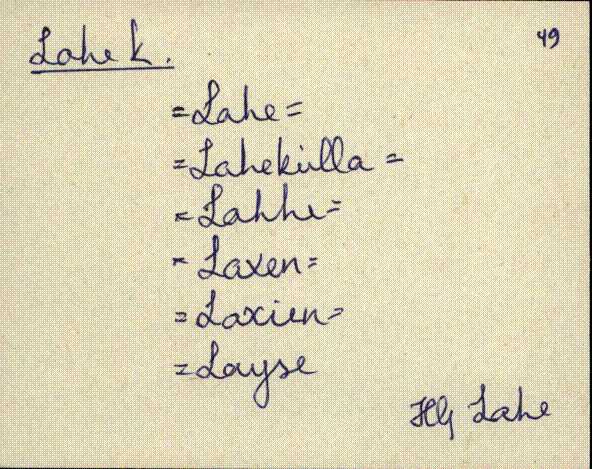 Lahe k.
49
=Lahe=
=Lahekülla=
=Lahhe=
=Laxen=
=Laxien=
=Layse
Hlj Lahe